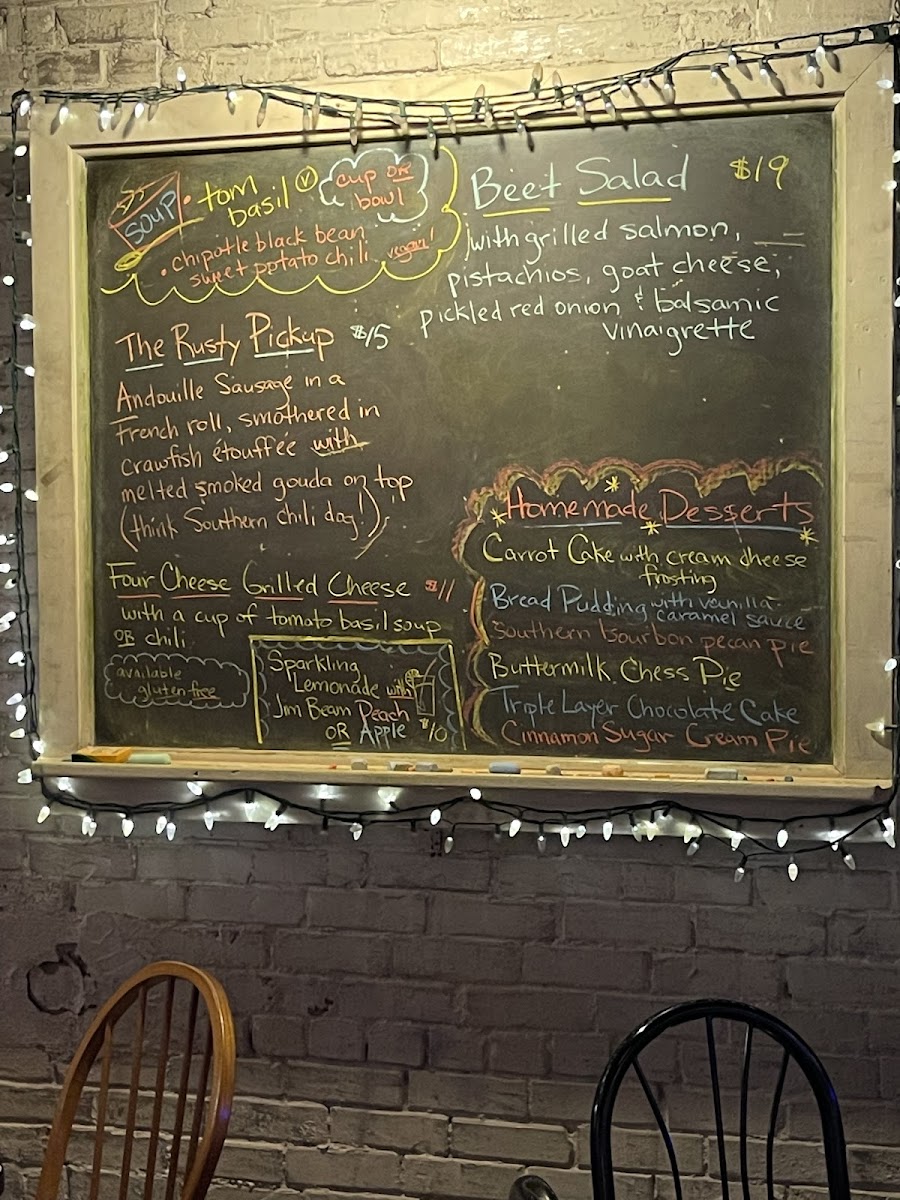 SOUP
• tom
basil Ⓥ
cup OR
bowl
• chipotle black bean
sweet potato chili vegan!
The Rusty Pickup $15
Andouille Sausage in a
French roll, smothered in
crawfish étouffée with
melted smoked gouda on top
(think Southern chili dog!)
Four Cheese Grilled Cheese $11
with a cup of tomato basil soup
OR chili
available
gluten free
Sparkling
Lemonade with
Jim Beam Peach
OR Apple $10
Beet Salad $19
with grilled salmon,
pistachios, goat cheese,
pickled red onion & balsamic
vinaigrette
Homemade Desserts
Carrot Cake with cream cheese
frosting
Bread Pudding with vanilla
caramel sauce
Southern bourbon pecan pie
Buttermilk Chess Pie
Triple Layer Chocolate Cake
Cinnamon Sugar Cream Pie